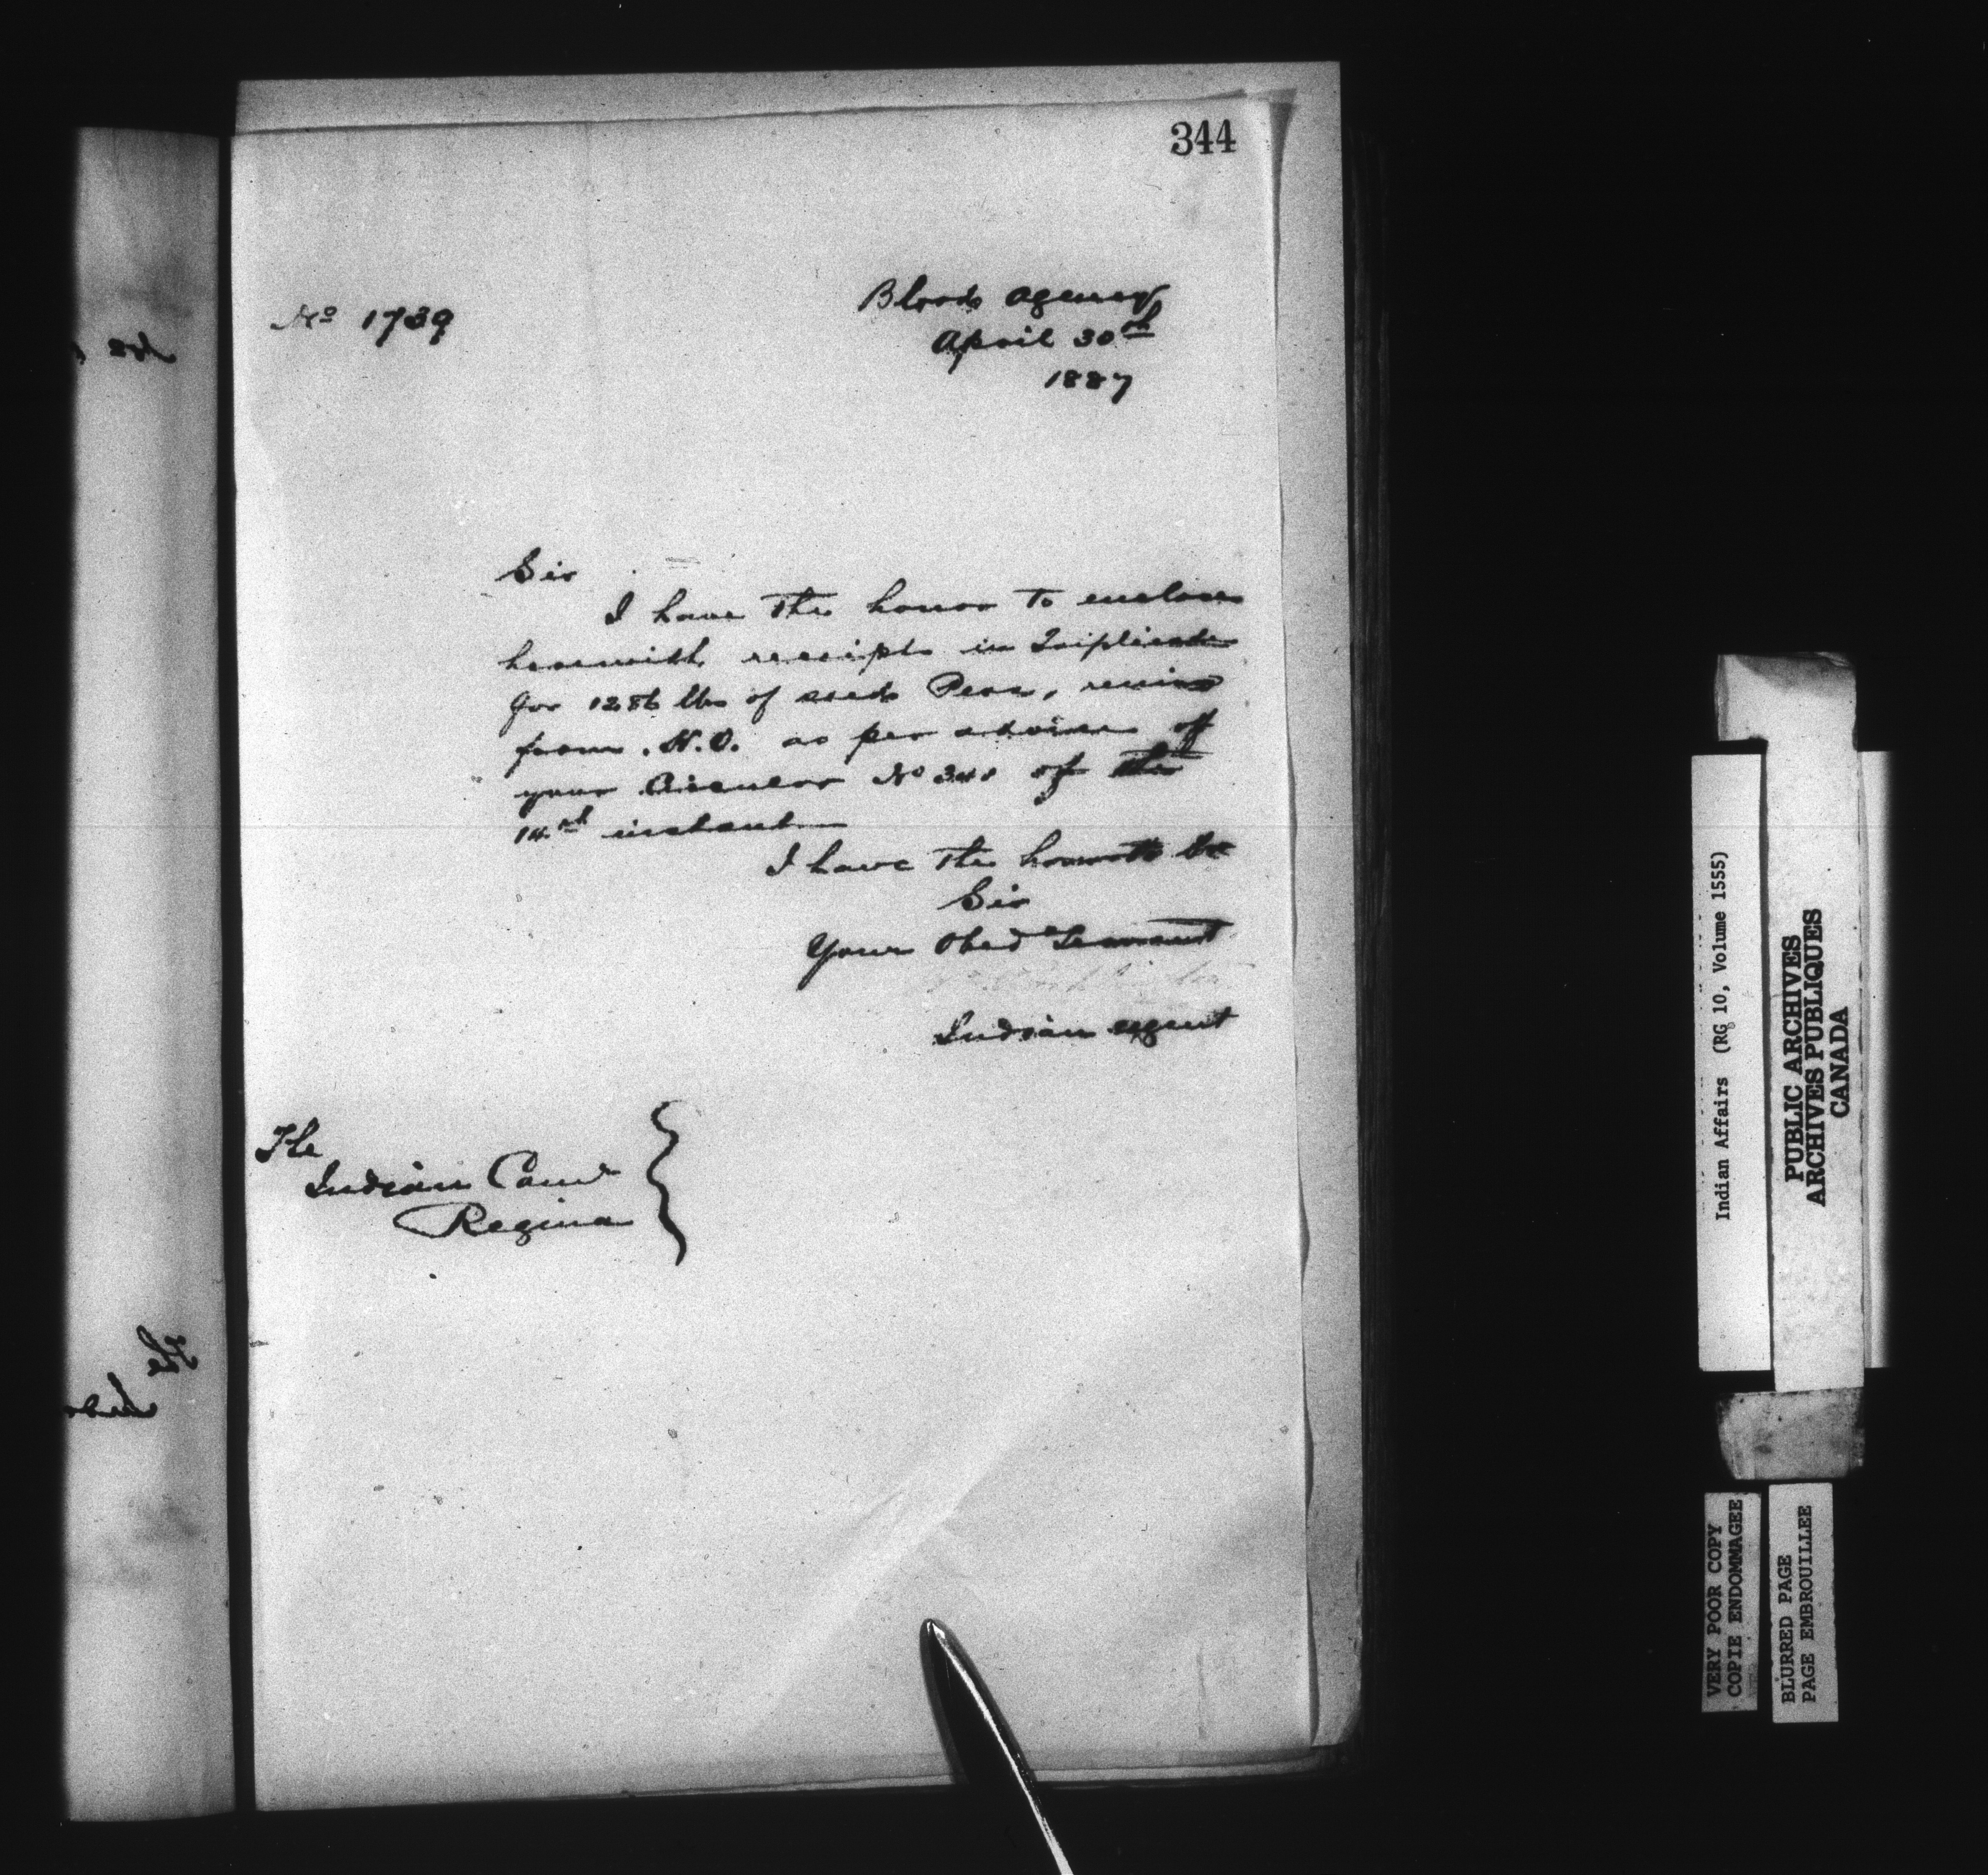 344
No 1739
Blood Agency
April 30th
1887
Sir
I have the honor to enclose
herewith receipts in Triplicate
for 1286 lbs of seed Peas,
from H.O. as per advice of
your Circular No of the
14th instant
I have the honor to be
Sir
Your Obed Servant
Indian Agent
The
Indian Comr
Regina
The
Indian Affairs (RG 10, Volume 1555)
PUBLIC ARCHIVES
ARCHIVES PUBLIQUES
CANADA
VERY POOR COPY
COPIE ENDOMMAGEE
BLURRED PAGE
PAGE EMBROUILLEE